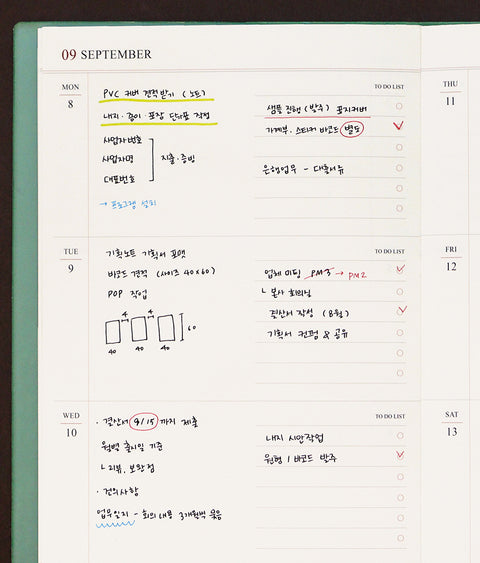 09 SEPTEMBER
MON
8
PVC 커버 견적받기 (노트)
내지·종이·포장 단위표 작성
사업자번호
사업자명
대표번호
지출·증빙
→ 프로그램 설치
TO DO LIST
샘플 진행 (발주) 표지커버
가계부. 스티커 바코드 별도
은행업무 - 대출서류
TUE
9
기획노트 기획서 포맷
바코드 견적 (사이즈 40×60)
POP 작업
4 4
60
40 40 40
TO DO LIST
업체 미팅 PM3 → PM2
ㄴ 본사 회의실
결산서 작성 (8월)
기획서 컨펌 & 공유
WED
10
· 결산서 9/15 까지 제출
월별 출시일 기준
ㄴ 리뷰. 보완점
· 건의사항
업무일지 - 회의 내용 3개월씩 묶음
TO DO LIST
내지 시안작업
원형 / 바코드 발주
THU
11
FRI
12
SAT
13